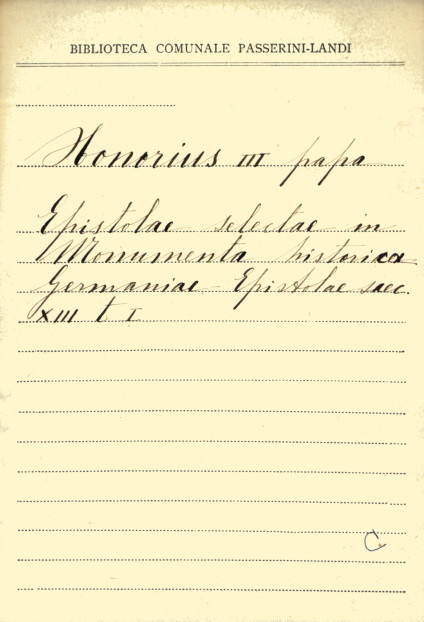 BIBLIOTECA COMUNALE PASSERINI-LANDI
Honorius III papa
Epistolae selectae in
Monumenta historica
Germaniae - Epistolae saec.
XIII t I
C.